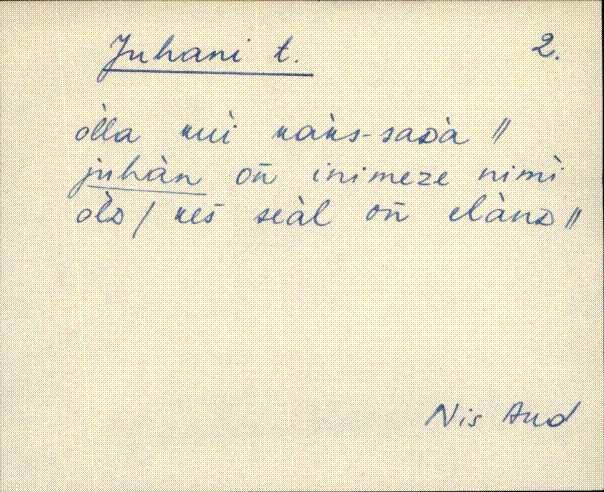 Juhani t. 2.
òlla kui kaks-sada //
juhàn on̄ inimeze nimì
olD / kes̄ seàl on̄ elànD //
Nis And